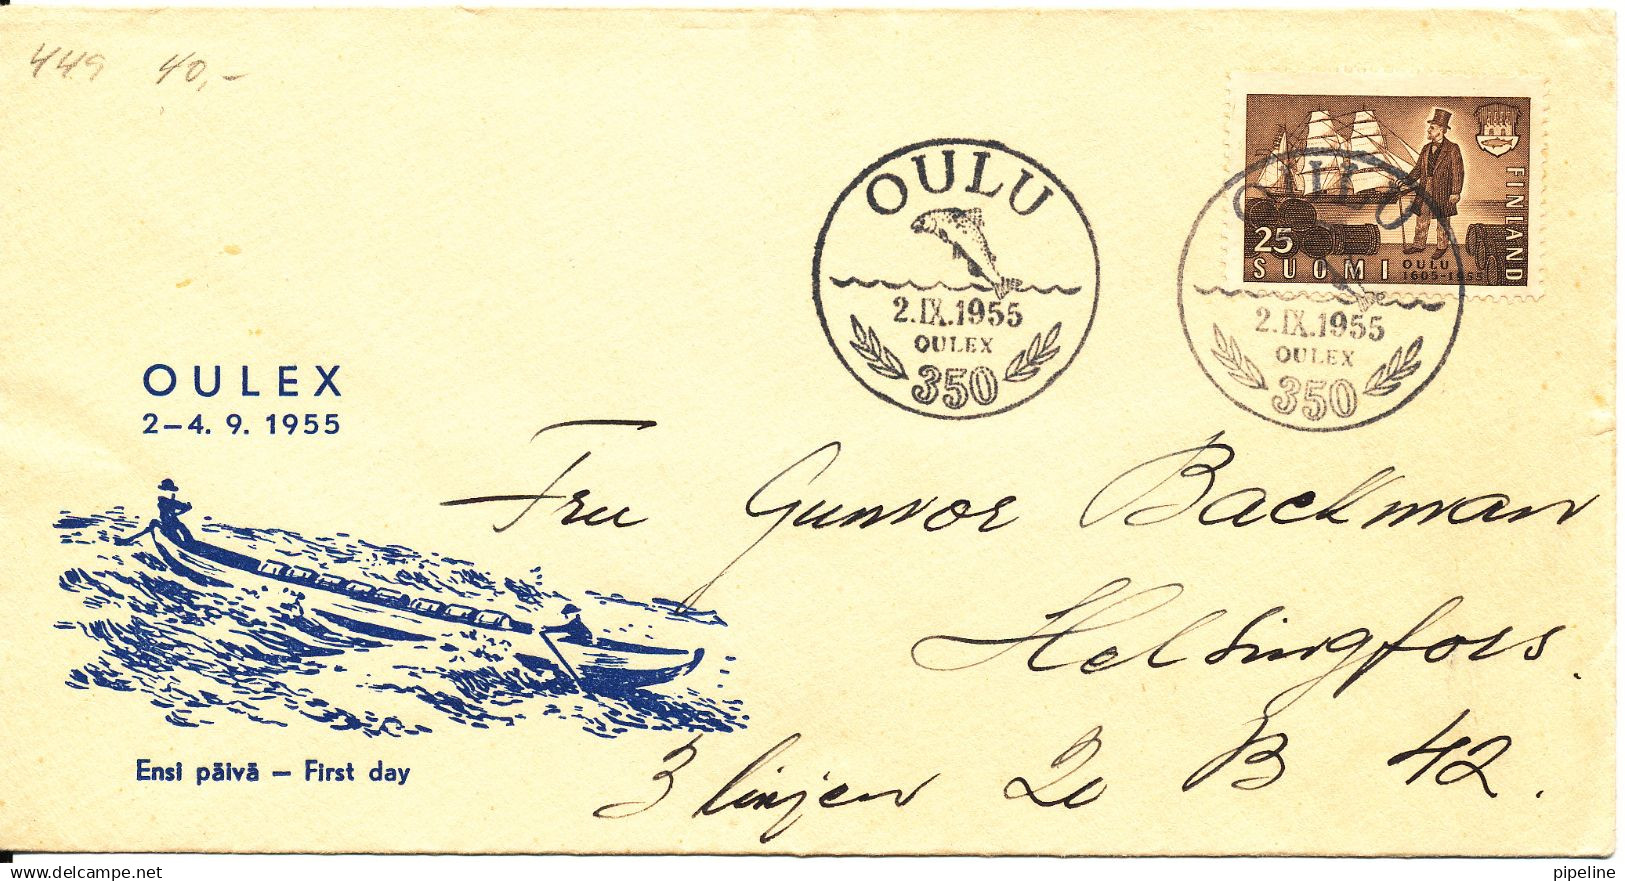 449 40,-
OULU
2.IX.1955
OULEX
350
OULU
2.IX.1955
OULEX
350
25
SUOMI
OULU
1605-1955
FINLAND
OULEX
2–4. 9. 1955
Fru Gunvor Backman
Helsingfors.
3 linjen 20 B 42.
Ensi päivä – First day
pipeline